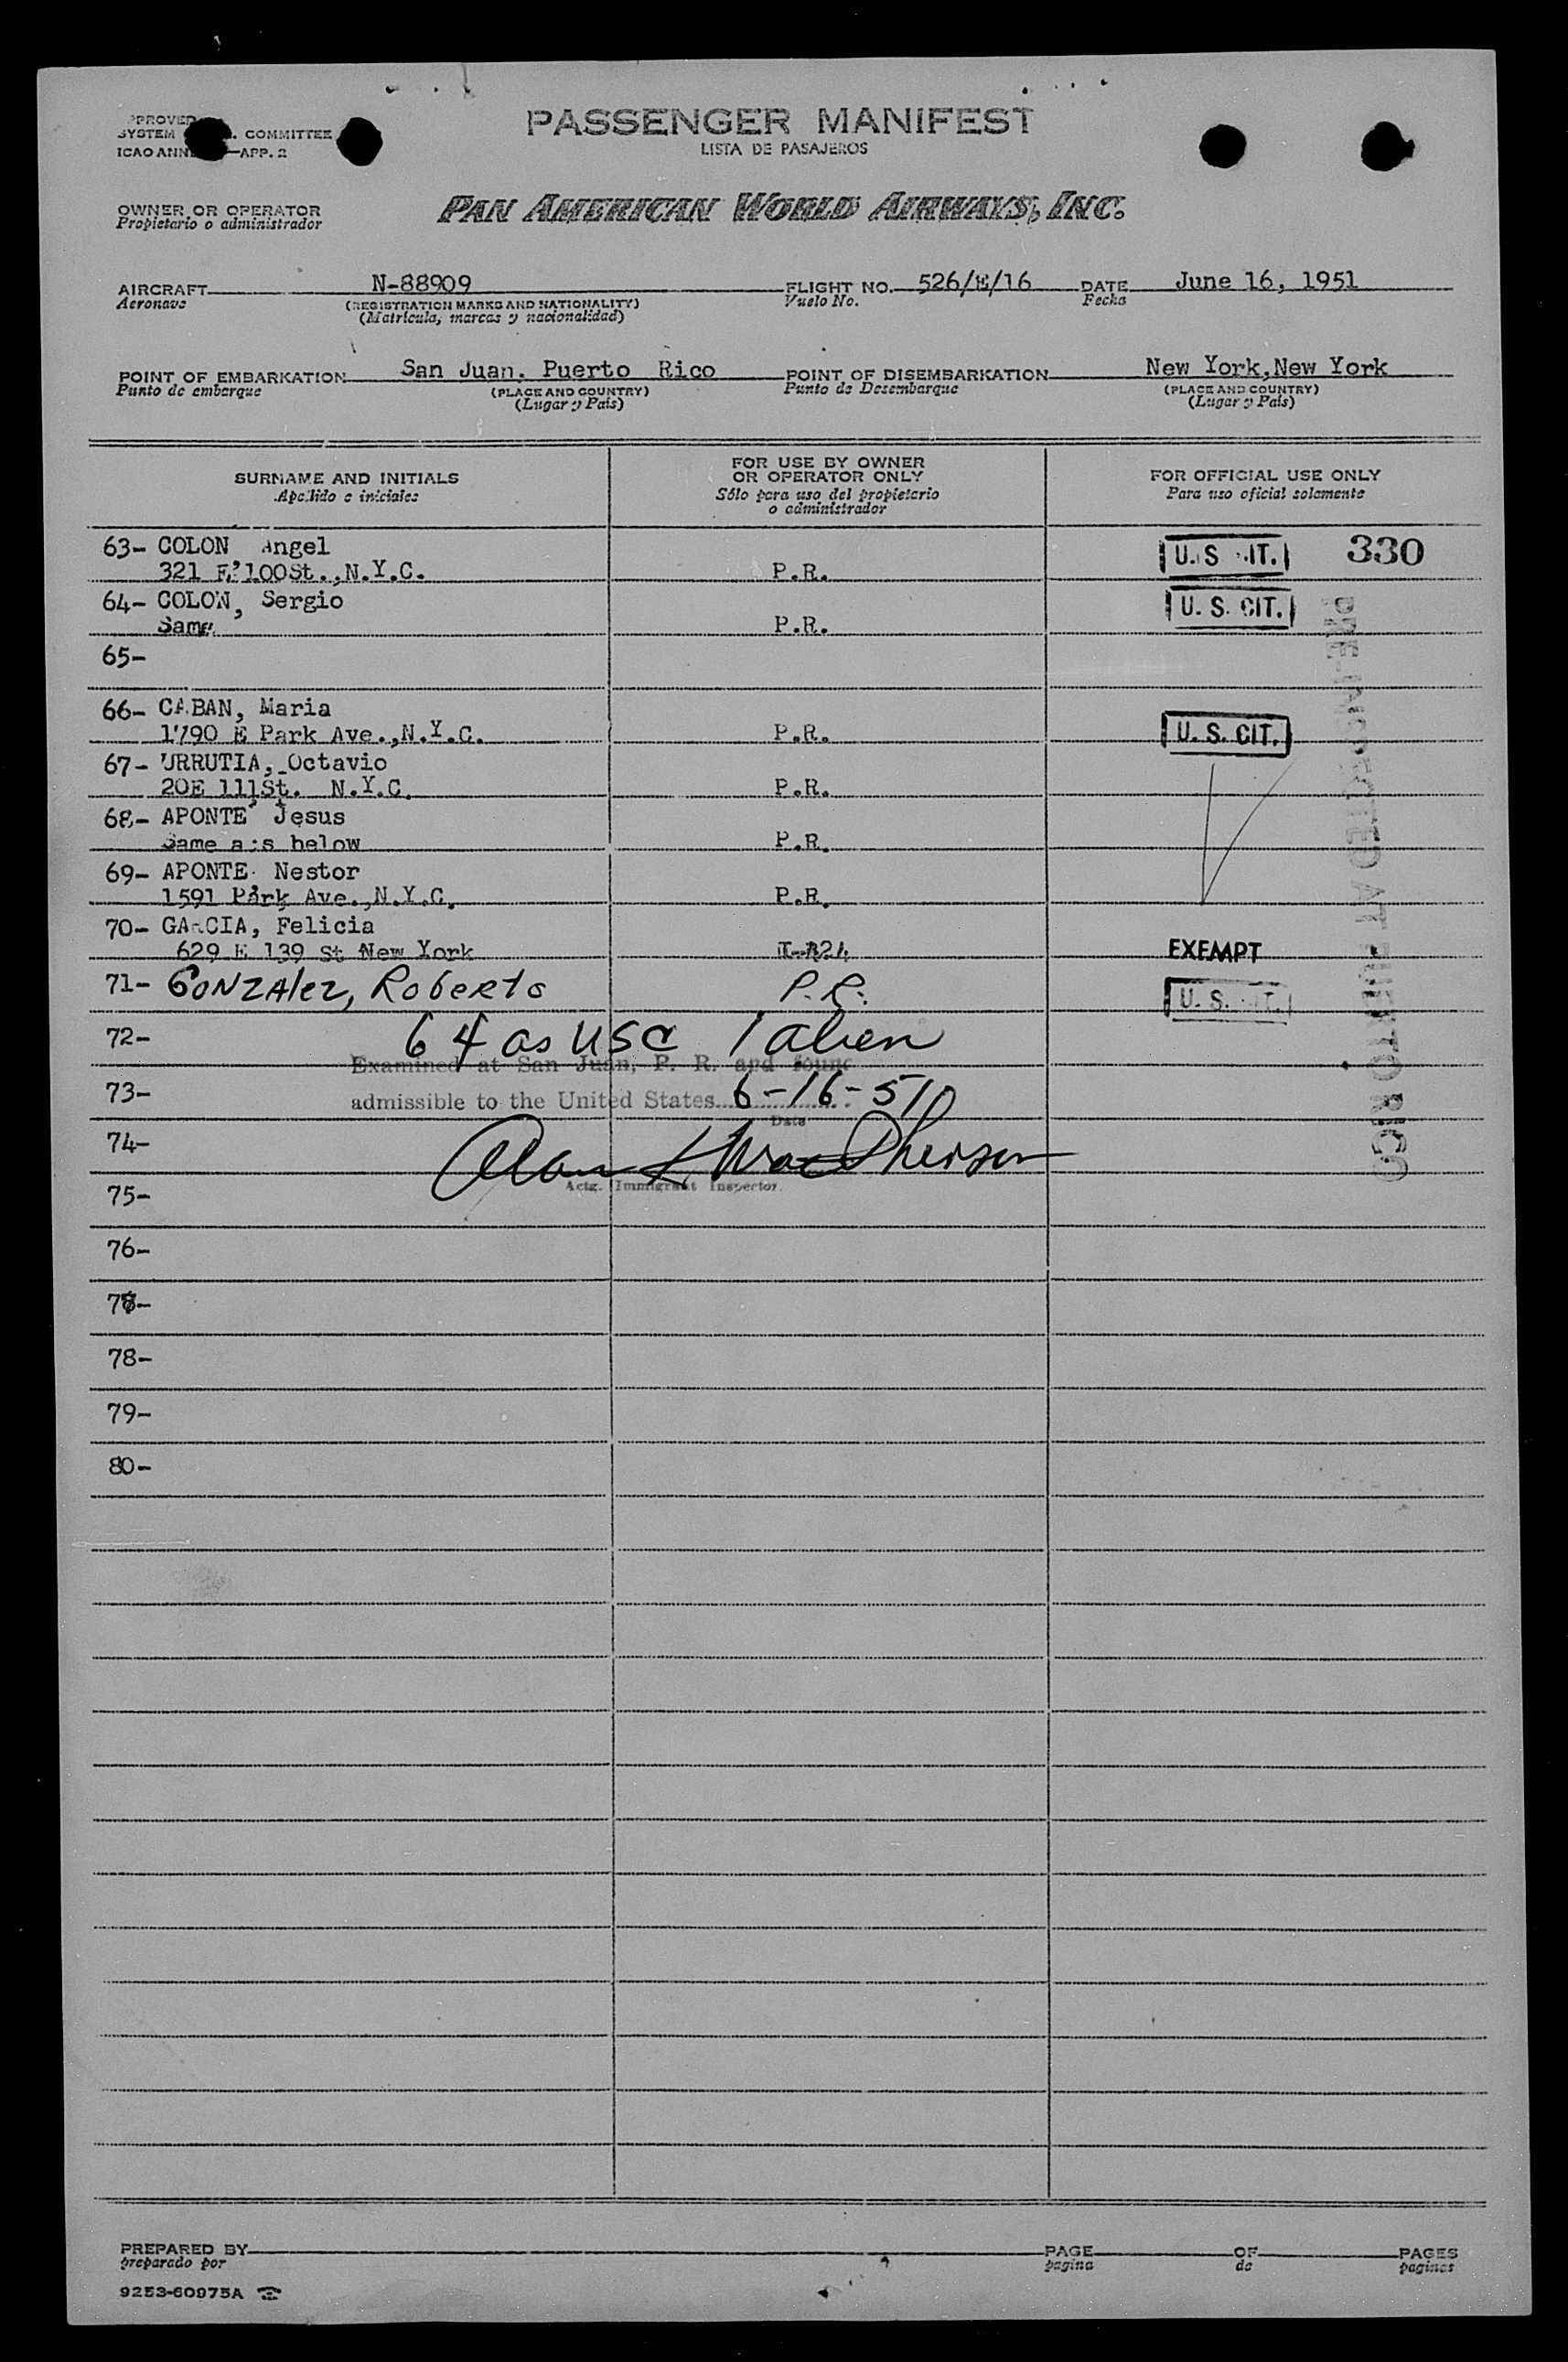 PASSENGER MANIFEST
LISTA DE PASAJEROS
SYSTEM COMMITTEE
—APP. 2
OWNER OR OPERATOR
Propietario o administrador
PAN AMERICAN WORLD AIRWAYS, INC.
AIRCRAFT N-88909 FLIGHT NO. 526/E/16 DATE June 16, 1951
Aeronave (REGISTRATION MARKS AND NATIONALITY) Vuelo No. Fecha
(Matricula, marcas y nacionalidad)
POINT OF EMBARKATION San Juan, Puerto Rico POINT OF DISEMBARKATION New York,New York
Punto de embarque (PLACE AND COUNTRY) Punto de Desembarque (PLACE AND COUNTRY)
(Lugar y País) (Lugar y País)
SURNAME AND INITIALS FOR USE BY OWNER OR OPERATOR ONLY FOR OFFICIAL USE ONLY
Apellido e iniciales Sólo para uso del propietario o administrador Para uso oficial solamente
63- COLON Angel U.S IT. 330
321 E 100St.,N.Y.C. P.R.
64- COLON, Sergio U. S. CIT.
Same P.R.
65-
66- CABAN, Maria
1790 E Park Ave.,N.Y.C. P.R. U. S. CIT.
67- URRUTIA, Octavio
20E 111St. N.Y.C. P.R.
68- APONTE Jesus
Same as below P.R.
69- APONTE Nestor
1591 Park Ave.,N.Y.C. P.R.
70- GARCIA, Felicia
629 E 139 St New York EXEMPT
71- GONZAlez, Roberto P.R. U. S. IT.
72- 64 as USC 1 alien
Examined at San Juan, P. R. and found
73- admissible to the United States 6-16-51
Date
74- Alan K MacPherson
Actg. Immigrant Inspector
75-
76-
77-
78-
79-
80-
PRE-INSPECTED AT PUERTO RICO
PREPARED BY PAGE OF PAGES
preparado por pagina de paginas
9253-60975A